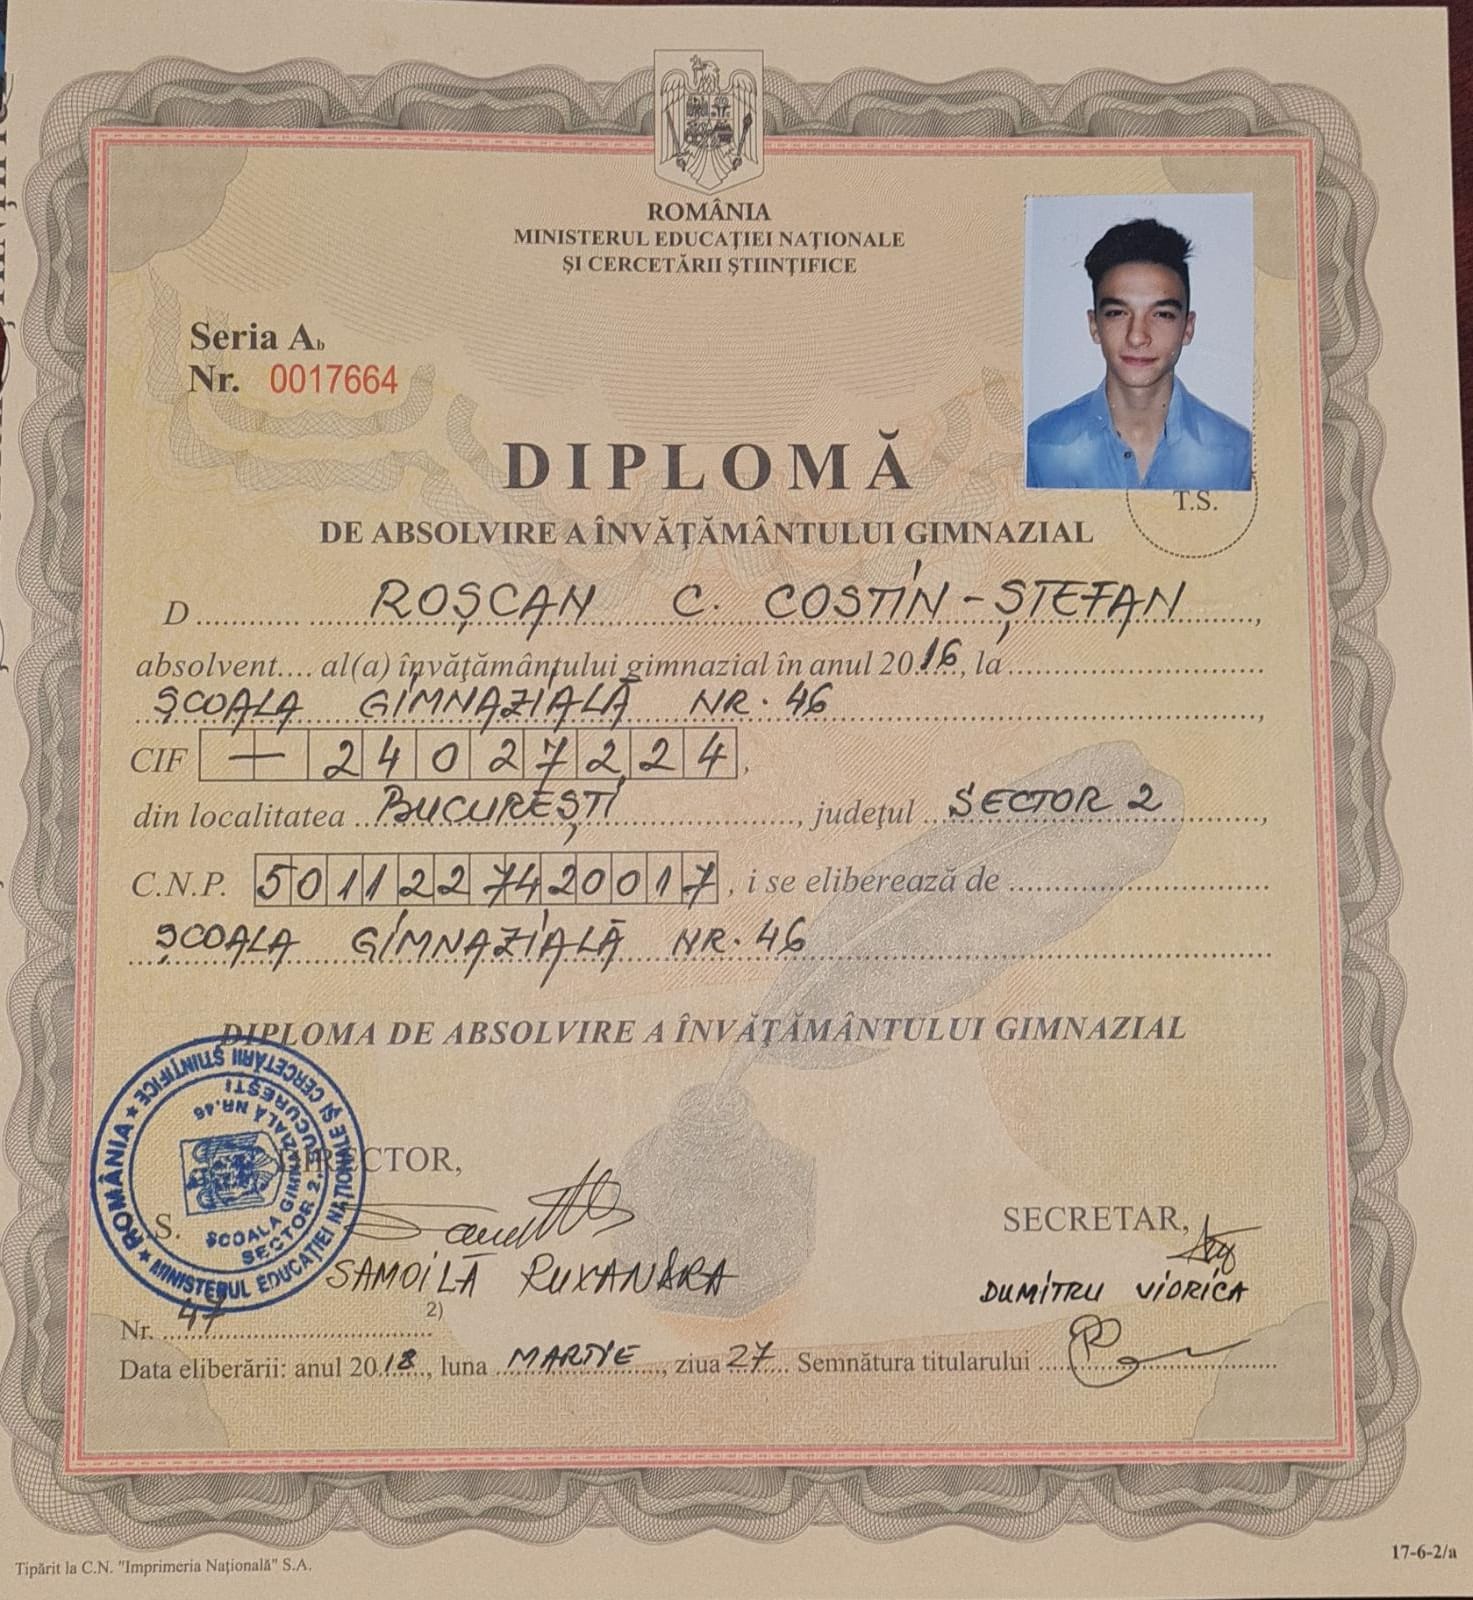 ROMÂNIA
MINISTERUL EDUCAŢIEI NAŢIONALE
ŞI CERCETĂRII ŞTIINŢIFICE
Seria Ab
Nr. 0017664
DIPLOMĂ
T.S.
DE ABSOLVIRE A ÎNVĂŢĂMÂNTULUI GIMNAZIAL
D............ ROŞCAN C. COSTIN-ŞTEFAN ,
absolvent.... al(a) învăţământului gimnazial în anul 2016, la
ŞCOALA GIMNAZIALĂ NR. 46 ,
CIF — 24027224 ,
din localitatea BUCUREŞTI , judeţul SECTOR 2 ,
C.N.P. 5011227420017 , i se eliberează de
ŞCOALA GIMNAZIALĂ NR. 46
DIPLOMA DE ABSOLVIRE A ÎNVĂŢĂMÂNTULUI GIMNAZIAL
★ ROMÂNIA ★ MINISTERUL EDUCAŢIEI NAŢIONALE ŞI CERCETĂRII ŞTIINŢIFICE
ŞCOALA GIMNAZIALĂ NR.46
SECTOR 2, BUCUREŞTI
DIRECTOR,
S.
SECRETAR,
SAMOILĂ RUXANDRA
DUMITRU VIORICA
Nr. 47 2)
Data eliberării: anul 2018, luna MARTIE, ziua 27 Semnătura titularului
Tipărit la C.N. "Imprimeria Naţională" S.A.
17-6-2/a